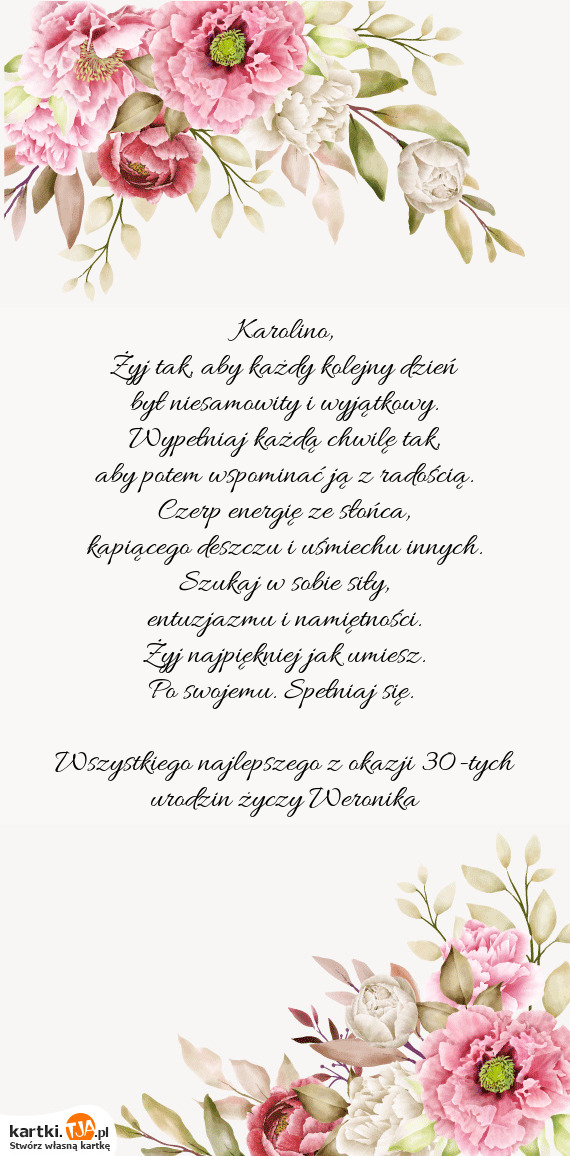 Karolino,
Żyj tak, aby każdy kolejny dzień
był niesamowity i wyjątkowy.
Wypełniaj każdą chwilę tak,
aby potem wspominać ją z radością.
Czerp energię ze słońca,
kapiącego deszczu i uśmiechu innych.
Szukaj w sobie siły,
entuzjazmu i namiętności.
Żyj najpiękniej jak umiesz.
Po swojemu. Spełniaj się.
Wszystkiego najlepszego z okazji 30-tych
urodzin życzy Weronika
kartki.TJA.pl
Stwórz własną kartkę